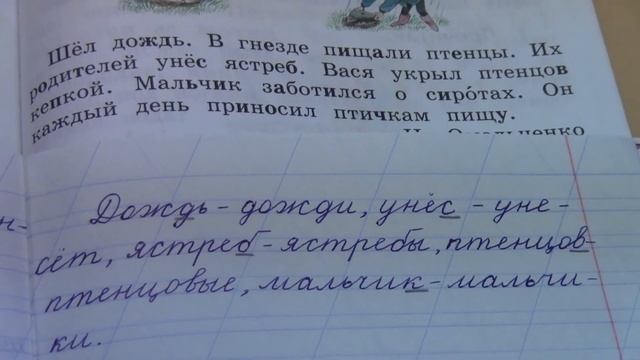 Шёл дождь. В гнезде пищали птенцы. Их
родителей унёс ястреб. Вася укрыл птенцов
кепкой. Мальчик заботился о сиро́тах. Он
каждый день приносил птичкам пищу.
н-
Дождь - дожди, унёс - уне-
сёт, ястреб - ястребы, птенцов-
птенцовые, мальчик - мальчи-
ки.